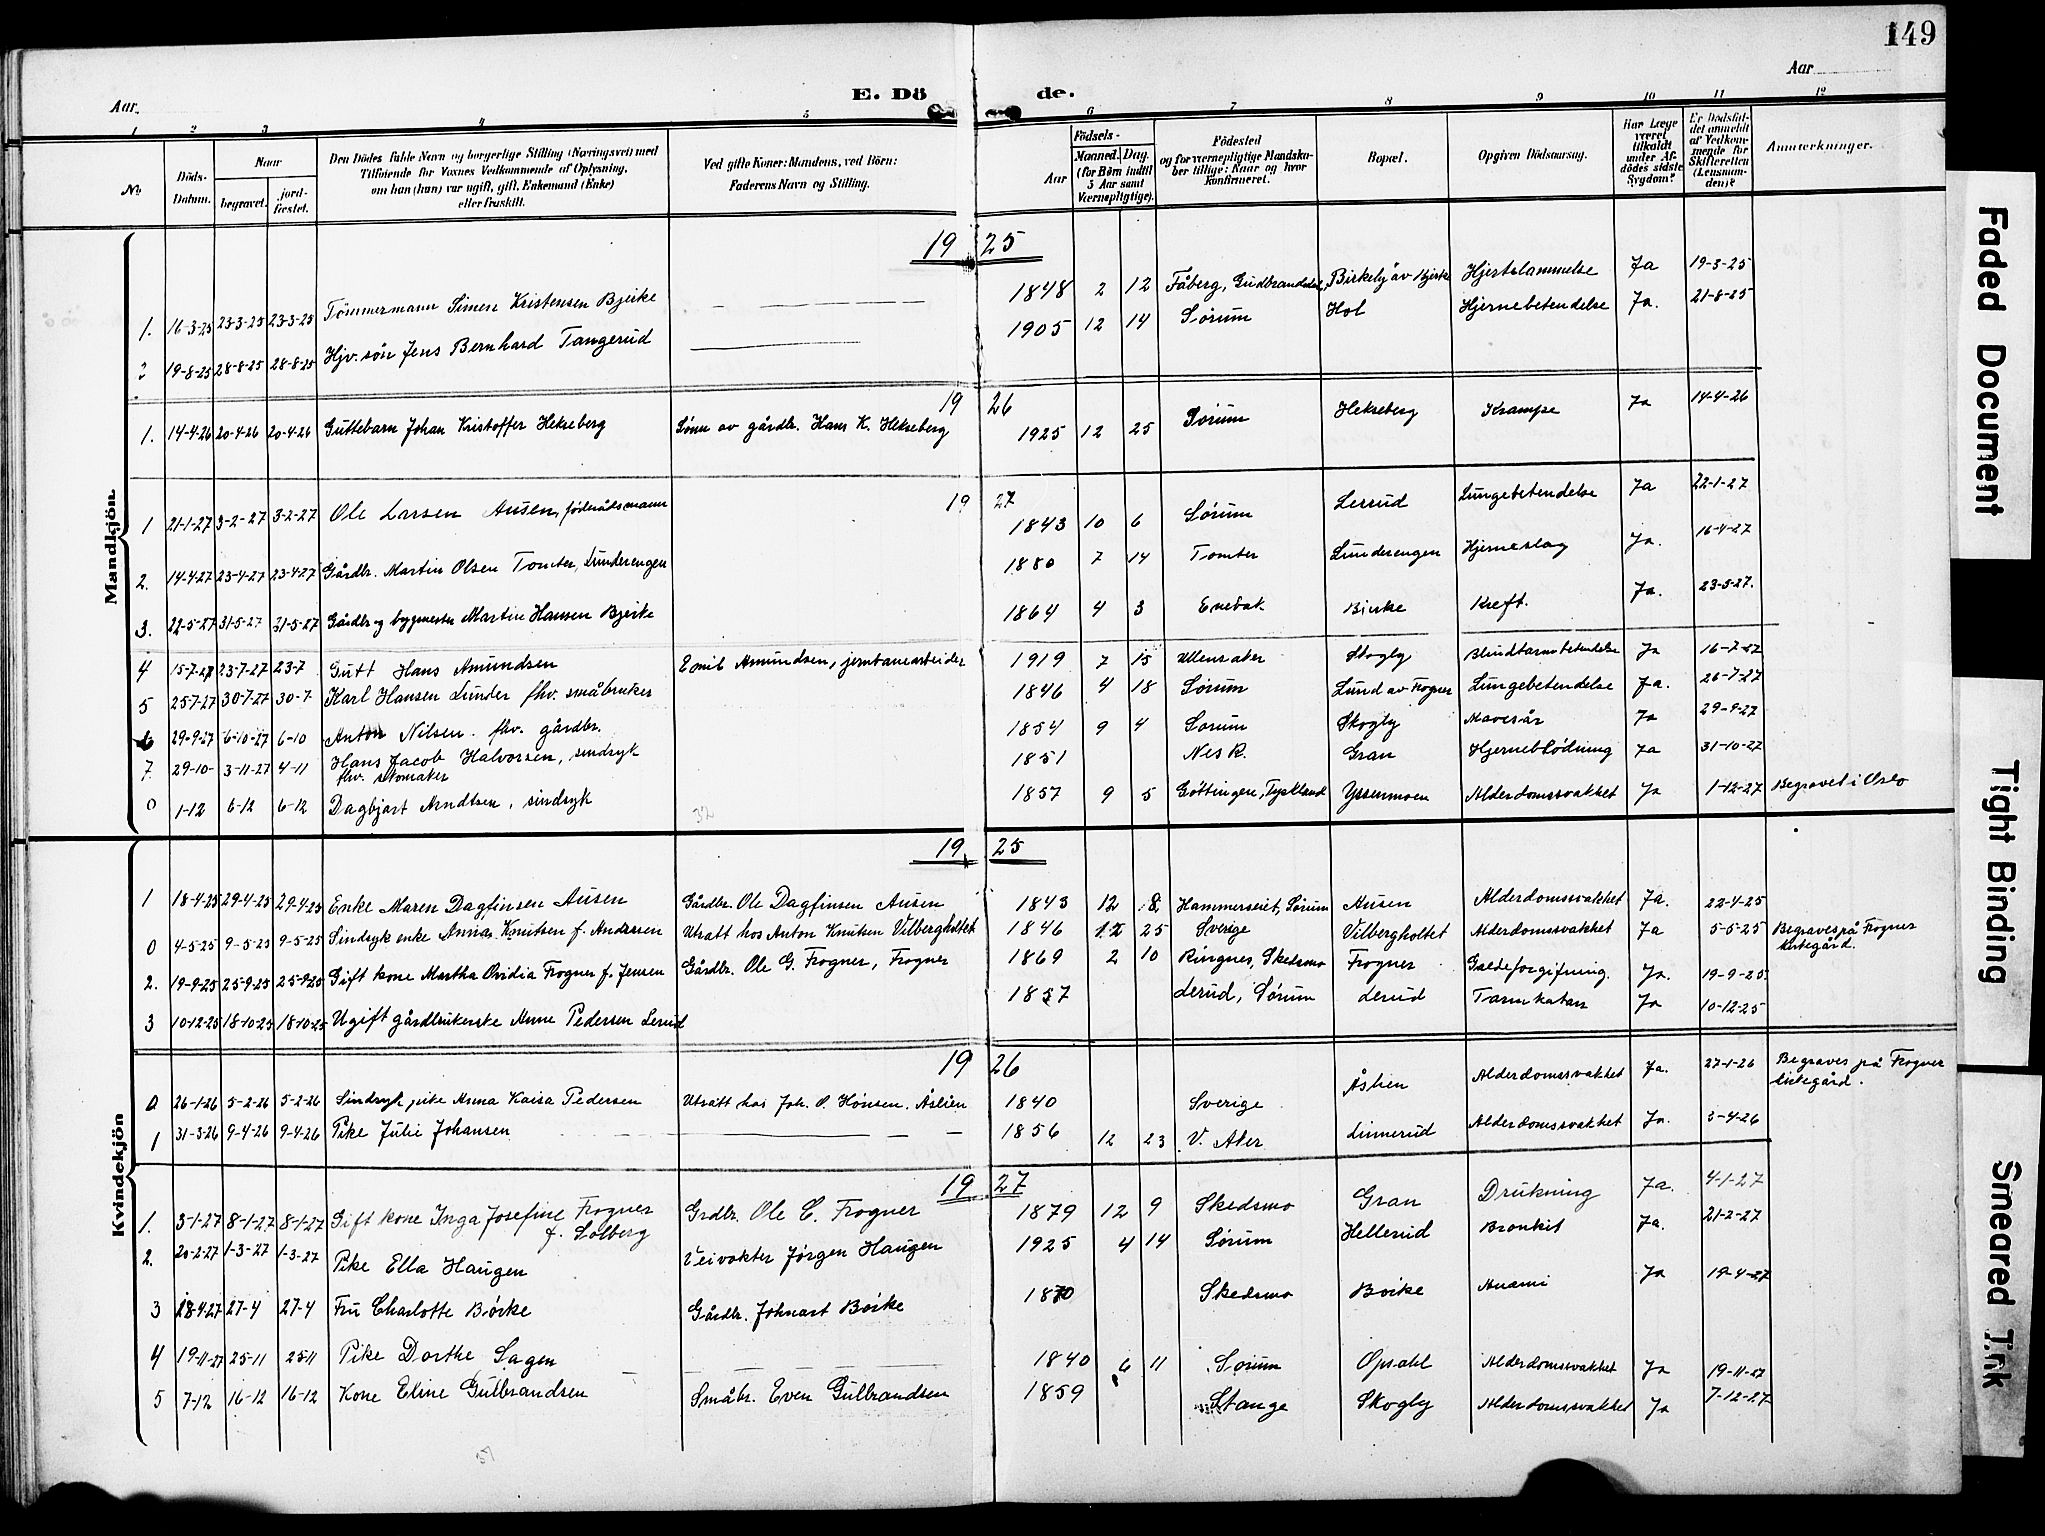 149
Aar
Aar
E. Dö de.
1 2 3 4 5 6 7 8 9 10 11 12
No
Döds-Datum.
Naar
begravet.
jord-fæstet.
Den Dödes fulde Navn og borgerlige Stilling (Næringsvei) med
Tilföiende for Voxnes Vedkommende af Oplysning,
om han (hun) var ugift, gift, Enkemand (Enke)
eller fraskilt.
Ved gifte Koner: Mandens, ved Börn:
Faderens Navn og Stilling.
Födsels-
Aar
Maaned. Dag.
(for Børn indtil 5 Aar samt Værnepligtige).
Födested
og for værnepligtige Mandskaber tillige: Naar og hvor konfirmeret.
Bopæl.
Opgiven Dödsaarsag.
Har Læge været tilkaldt under Afdödes sidste Sygdom?
Er Dödsfaldet anmeldt af Vedkommende for Skifteretten (Lensmanden)?
Anmærkninger.
Mandkjön.
19 25
1. 16-3-25 23-3-25 23-3-25 Tömmermann Simen Kristensen Bjerke — 1848 2 12 Fåberg, Gudbrandsdal, Birkely av Bjerke Hjertelammelse Ja 19-3-25
2 19-8-25 28-8-25 28-8-25 Hjv. sön Jens Bernhard Tangerud — 1905 12 14 Sörum Hol Hjernebetendelse Ja. 21-8-25
19 26
1. 14-4-26 20-4-26 20-4-26 Guttebarn Johan Kristoffer Hekseberg Sönn av gårdbr. Hans K. Hekseberg 1925 12 25 Sörum Hekseberg Krampe Ja 14-4-26
19 27
1 21-1-27 3-2-27 3-2-27 Ole Larsen Ausen, föderåtsmann 1843 10 6 Sörum Lerud Lungebetendelse Ja 22-1-27
2. 14-4-27 23-4-27 23-4-27 Gårdbr. Martin Olsen Tomter, Lunderengen 1880 7 14 Tomter Lunderengen Hjerneslag Ja. 16-4-27
3. 22-5-27 31-5-27 31-5-27 Gårdbr og bygmester Martin Hansen Bjerke 1864 4 3 Enebak Bjerke Kreft. Ja. 23-5-27.
4 15-7-27 23-7-27 23-7 Gutt Hans Amundsen Emil Amundsen, jernbanearbeider 1919 7 15 Ullensaker Skogly Blindtarmsbetendelse Ja 16-7-27
5 25-7-27 30-7-27 30-7- Karl Hansen Lunder fhv. småbruker 1846 4 18 Sörum Lund av Frogner Lungebetendelse Ja. 26-7-27
6 29-9-27 6-10-27 6-10 Anton Nilsen. fhv. gårdbr. 1854 9 4 Sörum Skogly Mavesår Ja 29-9-27
7. 29-10- 3-11-27 4-11 Hans Jacob Halvorsen, sindsyk 1851 Nes R. Gran Hjerneblödning Ja 31-10-27
fhv. skomaker
0 1-12 6-12 6-12 Dagbjart Arndtsen, sindsyk 1857 9 5 Göttingen, Tyskland Yssenmoen Alderdomssvakhet Ja 1-12-27 Begravet i Oslo
32
Kvindekjön
19 25
1 18-4-25 29-4-25 29-4-25 Enke Maren Dagfinsen Ausen Gårdbr. Ole Dagfinsen Ausen 1843 12 8 Hammerseiet, Sörum Ausen Alderdomssvakhet Ja. 22-4-25
0 4-5-25 9-5-25 9-5-25 Sindsyk enke Anna Knutsen f. Andersen Utsatt hos Anton Knutsen Vilbergholtet 1846 12 25 Sverige Vilbergholtet Alderdomssvakhet Ja 5-5-25 Begraves på Frogner
kirkegård.
2. 19-9-25 25-9-25 25-9-25 Gift kone Martha Ovidia Frogner f. Jensen Gårdbr. Ole G. Frogner, Frogner 1869 2 10 Ringnes, Skedsmo Frogner Galdeforgiftning. Ja. 19-9-25.
3 10-12-25 18-10-25 18-10-25 Ugift gårdbrukerske Anne Pedersen Lerud 1857 Lerud, Sörum Lerud Tarmkatarr Ja 10-12-25
19 26
0 26-1-26 5-2-26 5-2-26 Sindsyk pike Anna Kaisa Pedersen Utsatt hos Joh. O. Hönsen. Åslien 1840 Sverige Åslien Alderdomssvakhet Ja. 27-1-26 Begraves på Frogner
kirkegård.
1 31-3-26 9-4-26 9-4-26 Pike Julie Johansen — 1856 12 23 V. Aker Linnerud Alderdomssvakhet Ja. 3-4-26
19 27
1. 3-1-27 8-1-27 8-1-27 Gift kone Inga Josefine Frogner Grdbr. Ole C. Frogner 1879 12 9 Skedsmo Gran Drukning Ja. 4-1-27
f. Solberg
2. 20-2-27 1-3-27 1-3-27 Pike Ella Haugen Veivokter Jörgen Haugen 1925 4 14 Sörum Hellerud Bronkit Ja. 21-2-27
3 18-4-27 27-4 27-4 Fru Charlotte Börke Gårdbr. Johnart Börke 1870 Skedsmo Börke Anami Ja 19-4-27
4 19-11-27 25-11 25-11 Pike Dorthe Sagen — 1840 6 11 Sörum Opsahl Alderdomssvakhet Ja 19-11-27
5 7-12 16-12 16-12 Kone Eline Gulbrandsen Småbr. Even Gulbrandsen 1859 Stange Skogly Alderdomssvakhet Ja 7-12-27
Faded Document
Tight Binding
Smeared Ink